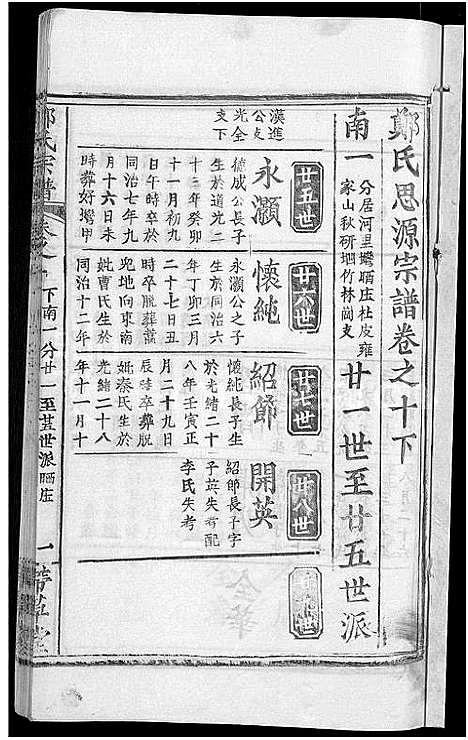 鄭氏思源宗譜卷之十下
南一
分居河里壪晒庄杜皮雍
家山秋硏堌竹林岡支
廿一世至廿五世派
漢進
公支
光全
支下
廿五世
永灝
德成公長子
生於道光二
十三年癸卯
十一月初九
日午時卒於
同治七年九
月十六日未
時葬好壪甲
廿六世
懷純
永灝公之子
生於同治六
年丁卯三月
二十七日丑
時卒脫葬蒿
兜地向東南
妣曹氏生於
同治十二年
廿七世
紹節
懷純長子生
於光緒二十
八年壬寅正
月二十九日
辰時卒葬脫
妣秦氏生於
光緒二十八
年十一月十
廿八世
開英
紹節長子字
子英失考配
李氏失考
鄭氏宗譜
卷之十
下南一分廿一至廿五世派晒庄
一